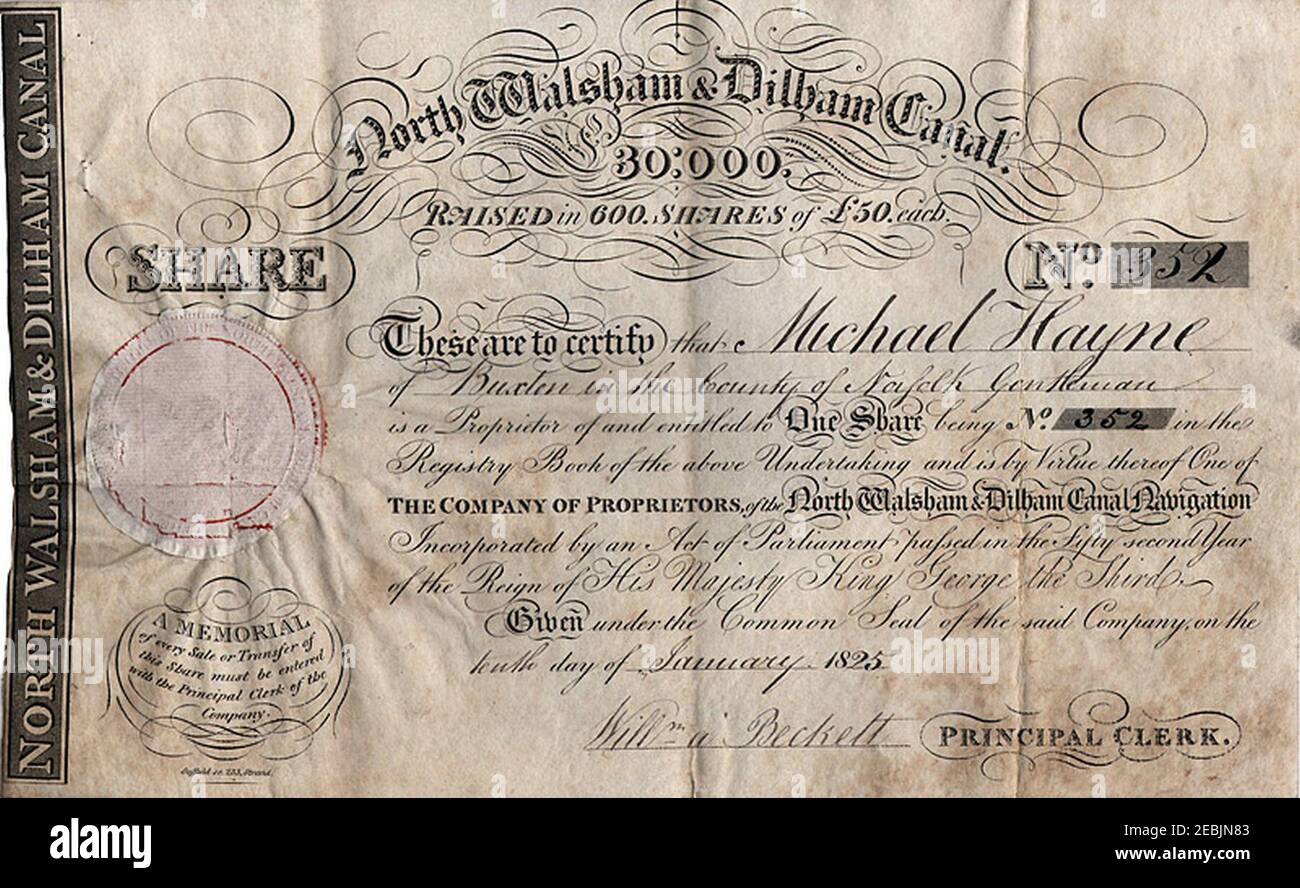 NORTH WALSHAM & DILHAM CANAL
North Walsham & Dilham Canal.
£30:000.
RAISED in 600. SHARES of £50. each.
SHARE
No. 352
These are to certify that Michael Hayne
of Buxton in the County of Norfolk Gentleman
is a Proprietor of and entitled to One Share being No. 352 in the
Registry Book of the above Undertaking and is by Virtue thereof One of
THE COMPANY OF PROPRIETORS, of the North Walsham & Dilham Canal Navigation
Incorporated by an Act of Parliament passed in the Fifty second Year
of the Reign of His Majesty King George the Third
Given under the Common Seal of the said Company, on the
tenth day of January 1825
A MEMORIAL
of every Sale or Transfer of
this Share must be entered
with the Principal Clerk of the
Company.
Willm. a' Beckett PRINCIPAL CLERK.
Suffield sc. 233, Strand.
alamy
alamy
Image ID: 2EBJN83
www.alamy.com